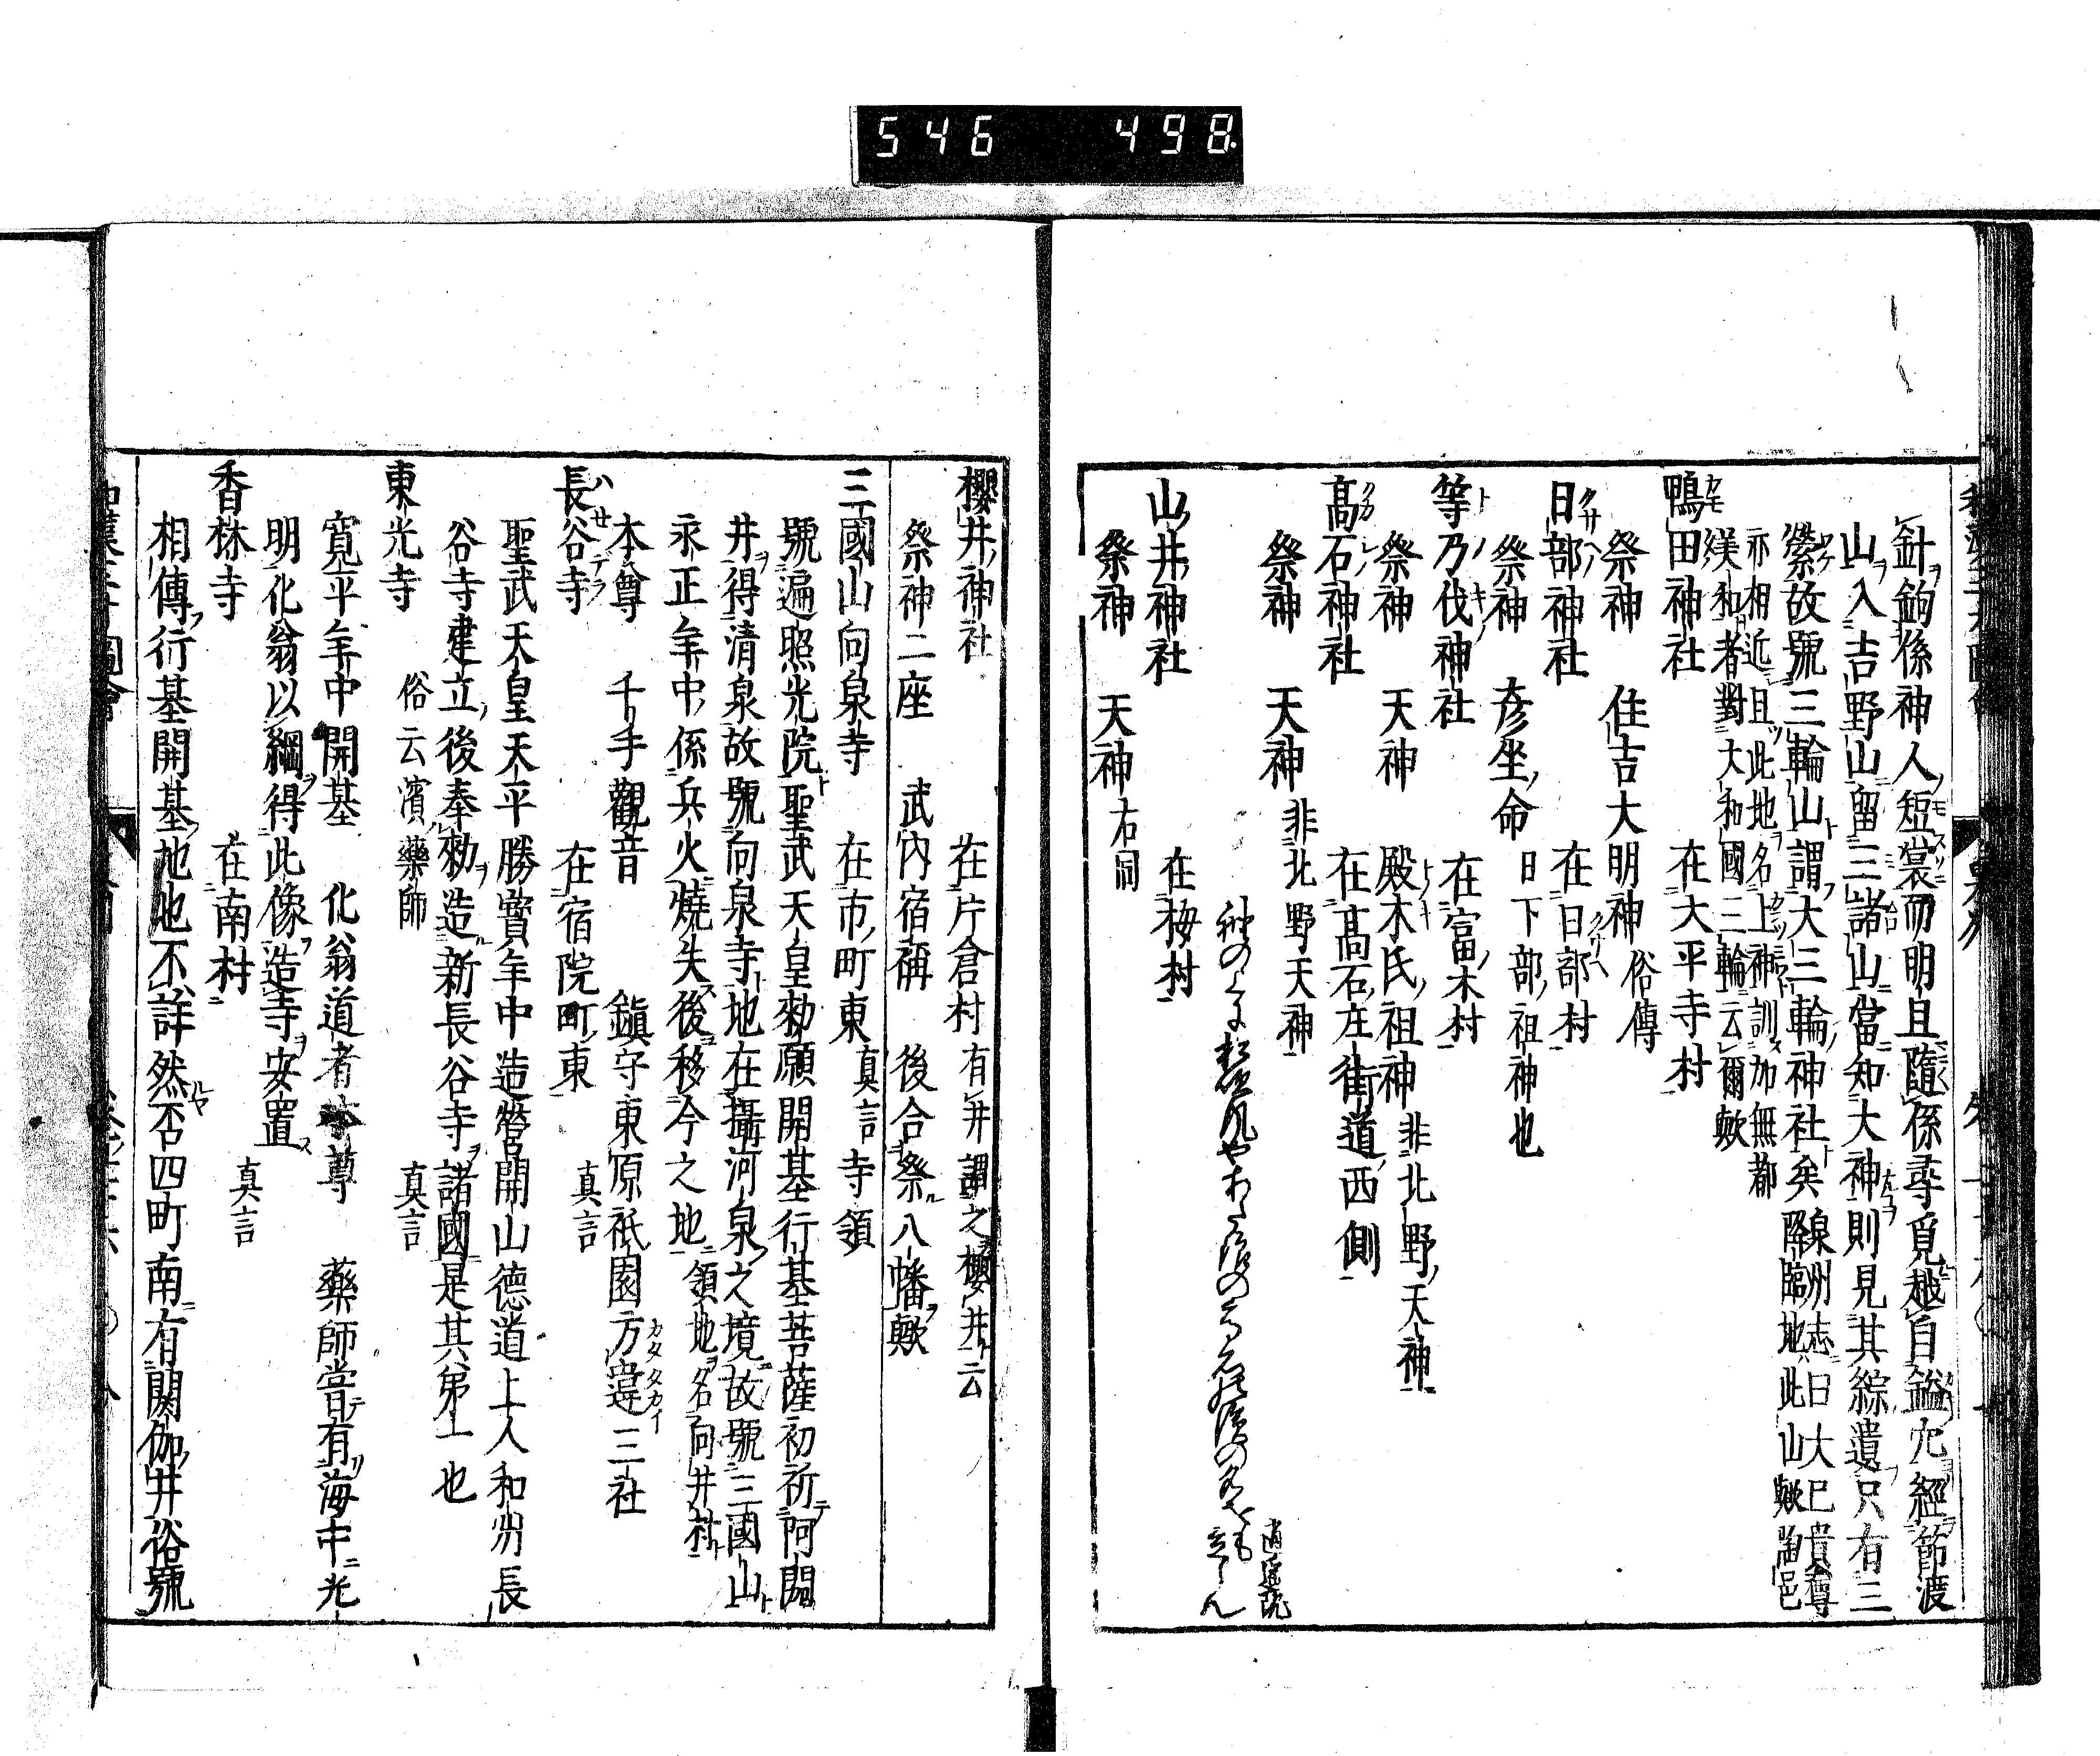 546 498
針鉤係神人短裳而明旦隨係尋覓越自鎰穴經節渡
山入吉野山留三諸山當知大神則見其綜遺只有三
縈故號三輪山謂大三輪神社矣
泉州志曰大巳貴尊
降臨地此山歟陶邑
亦相近且此地名上神訓加無都
渼和者對大和國三輪云爾歟
鴨田神社 在大平寺村
祭神 住吉大明神 俗傳
日部神社 在日部村
祭神 彦坐命 日下部祖神也
等乃伐神社 在富木村
祭神 天神 殿木氏祖神 非北野天神
高石神社 在高石庄街道西側
祭神 天神 非北野天神
逍遥院
山井神社 在梅村
祭神 天神 右同
櫻井神社 在片倉村 有井謂之櫻井云
祭神二座 武内宿禰 後合祭八幡歟
三國山向泉寺 在市町東 真言 寺領
號遍照光院聖武天皇勅願開基行基菩薩初祈阿閦
井得清泉故號向泉寺地在攝河泉之境故號三國山
永正年中係兵火燒失後移今之地 領地名向井村
本尊 千手觀音 鎮守東原祇園方違三社
長谷寺 在宿院町東 真言
聖武天皇天平勝寶年中造營開山德道上人和州長
谷寺建立後奉勅造新長谷寺諸國是其第一也
東光寺 俗云濱藥師 真言
寬平年中開基 化翁道者本尊 藥師嘗有海中光
明化翁以綱得此像造寺安置
香林寺 在南村 真言
相傳行基開基地也不詳然否四町南有閼伽井俗號